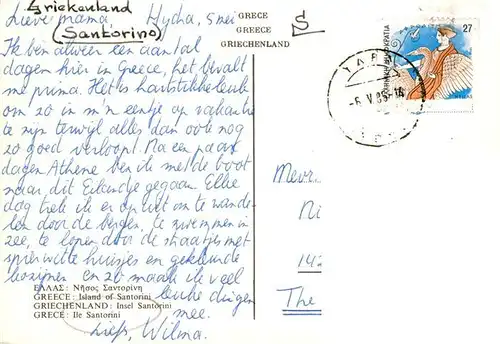 Griekenland
(Santorino)
Lieve mama Hydra, 5 mei
Ik ben alweer een aantal
dagen hier in Greece, het bevalt
me prima. Het is hartstikke leuk
om zo in m'n eentje op vakantie
te zijn terwijl alles dan ook nog
zo goed verloopt. Na een paar
dagen Athene ben ik met de boot
naar dit Eilandje gegaan. Elke
dag trek ik er op uit om te wande-
len door de bergen, te zwemmen in
zee, te lopen door de straatjes met
spierwitte huisjes en gekleurde
kozijnen en zo maak ik veel
leuke dingen
mee.
Liefs, Wilma.
ΕΛΛΑΣ: Νῆσος Σαντορίνη
GREECE: Island of Santorini
GRIECHENLAND: Insel Santorini
GRECE: Ile Santorini
GRECE
GREECE
GRIECHENLAND
S
27
ΥΔΡΑ
-6.V.86-14
Mevr.
Ni
142
The